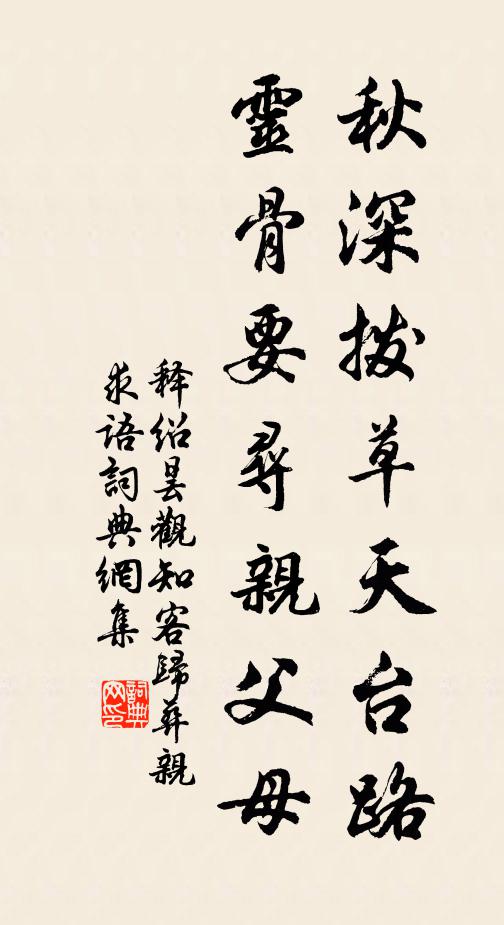 秋深撥草天台路
靈骨要尋親父母
释绍昙觀知客歸葬親
求语詞典網集
詞典网印